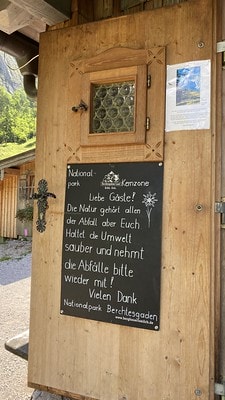 National-
park Kernzone
Liebe Gäste!
Die Natur gehört allen
der Abfall aber Euch
Haltet die Umwelt
sauber und nehmt
die Abfälle bitte
wieder mit!
Vielen Dank
Nationalpark Berchtesgaden